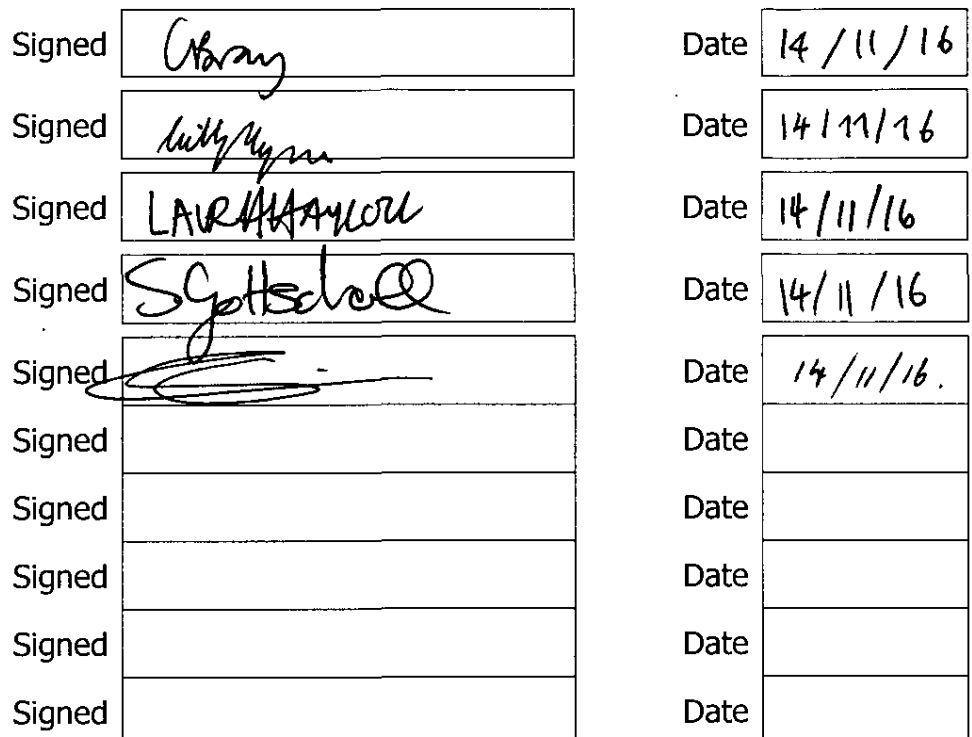 Signed Date 14/11/16
Signed Date 14/11/16
Signed Date 14/11/16
Signed SGottschall Date 14/11/16
Signed Date 14/11/16.
Signed Date
Signed Date
Signed Date
Signed Date
Signed Date